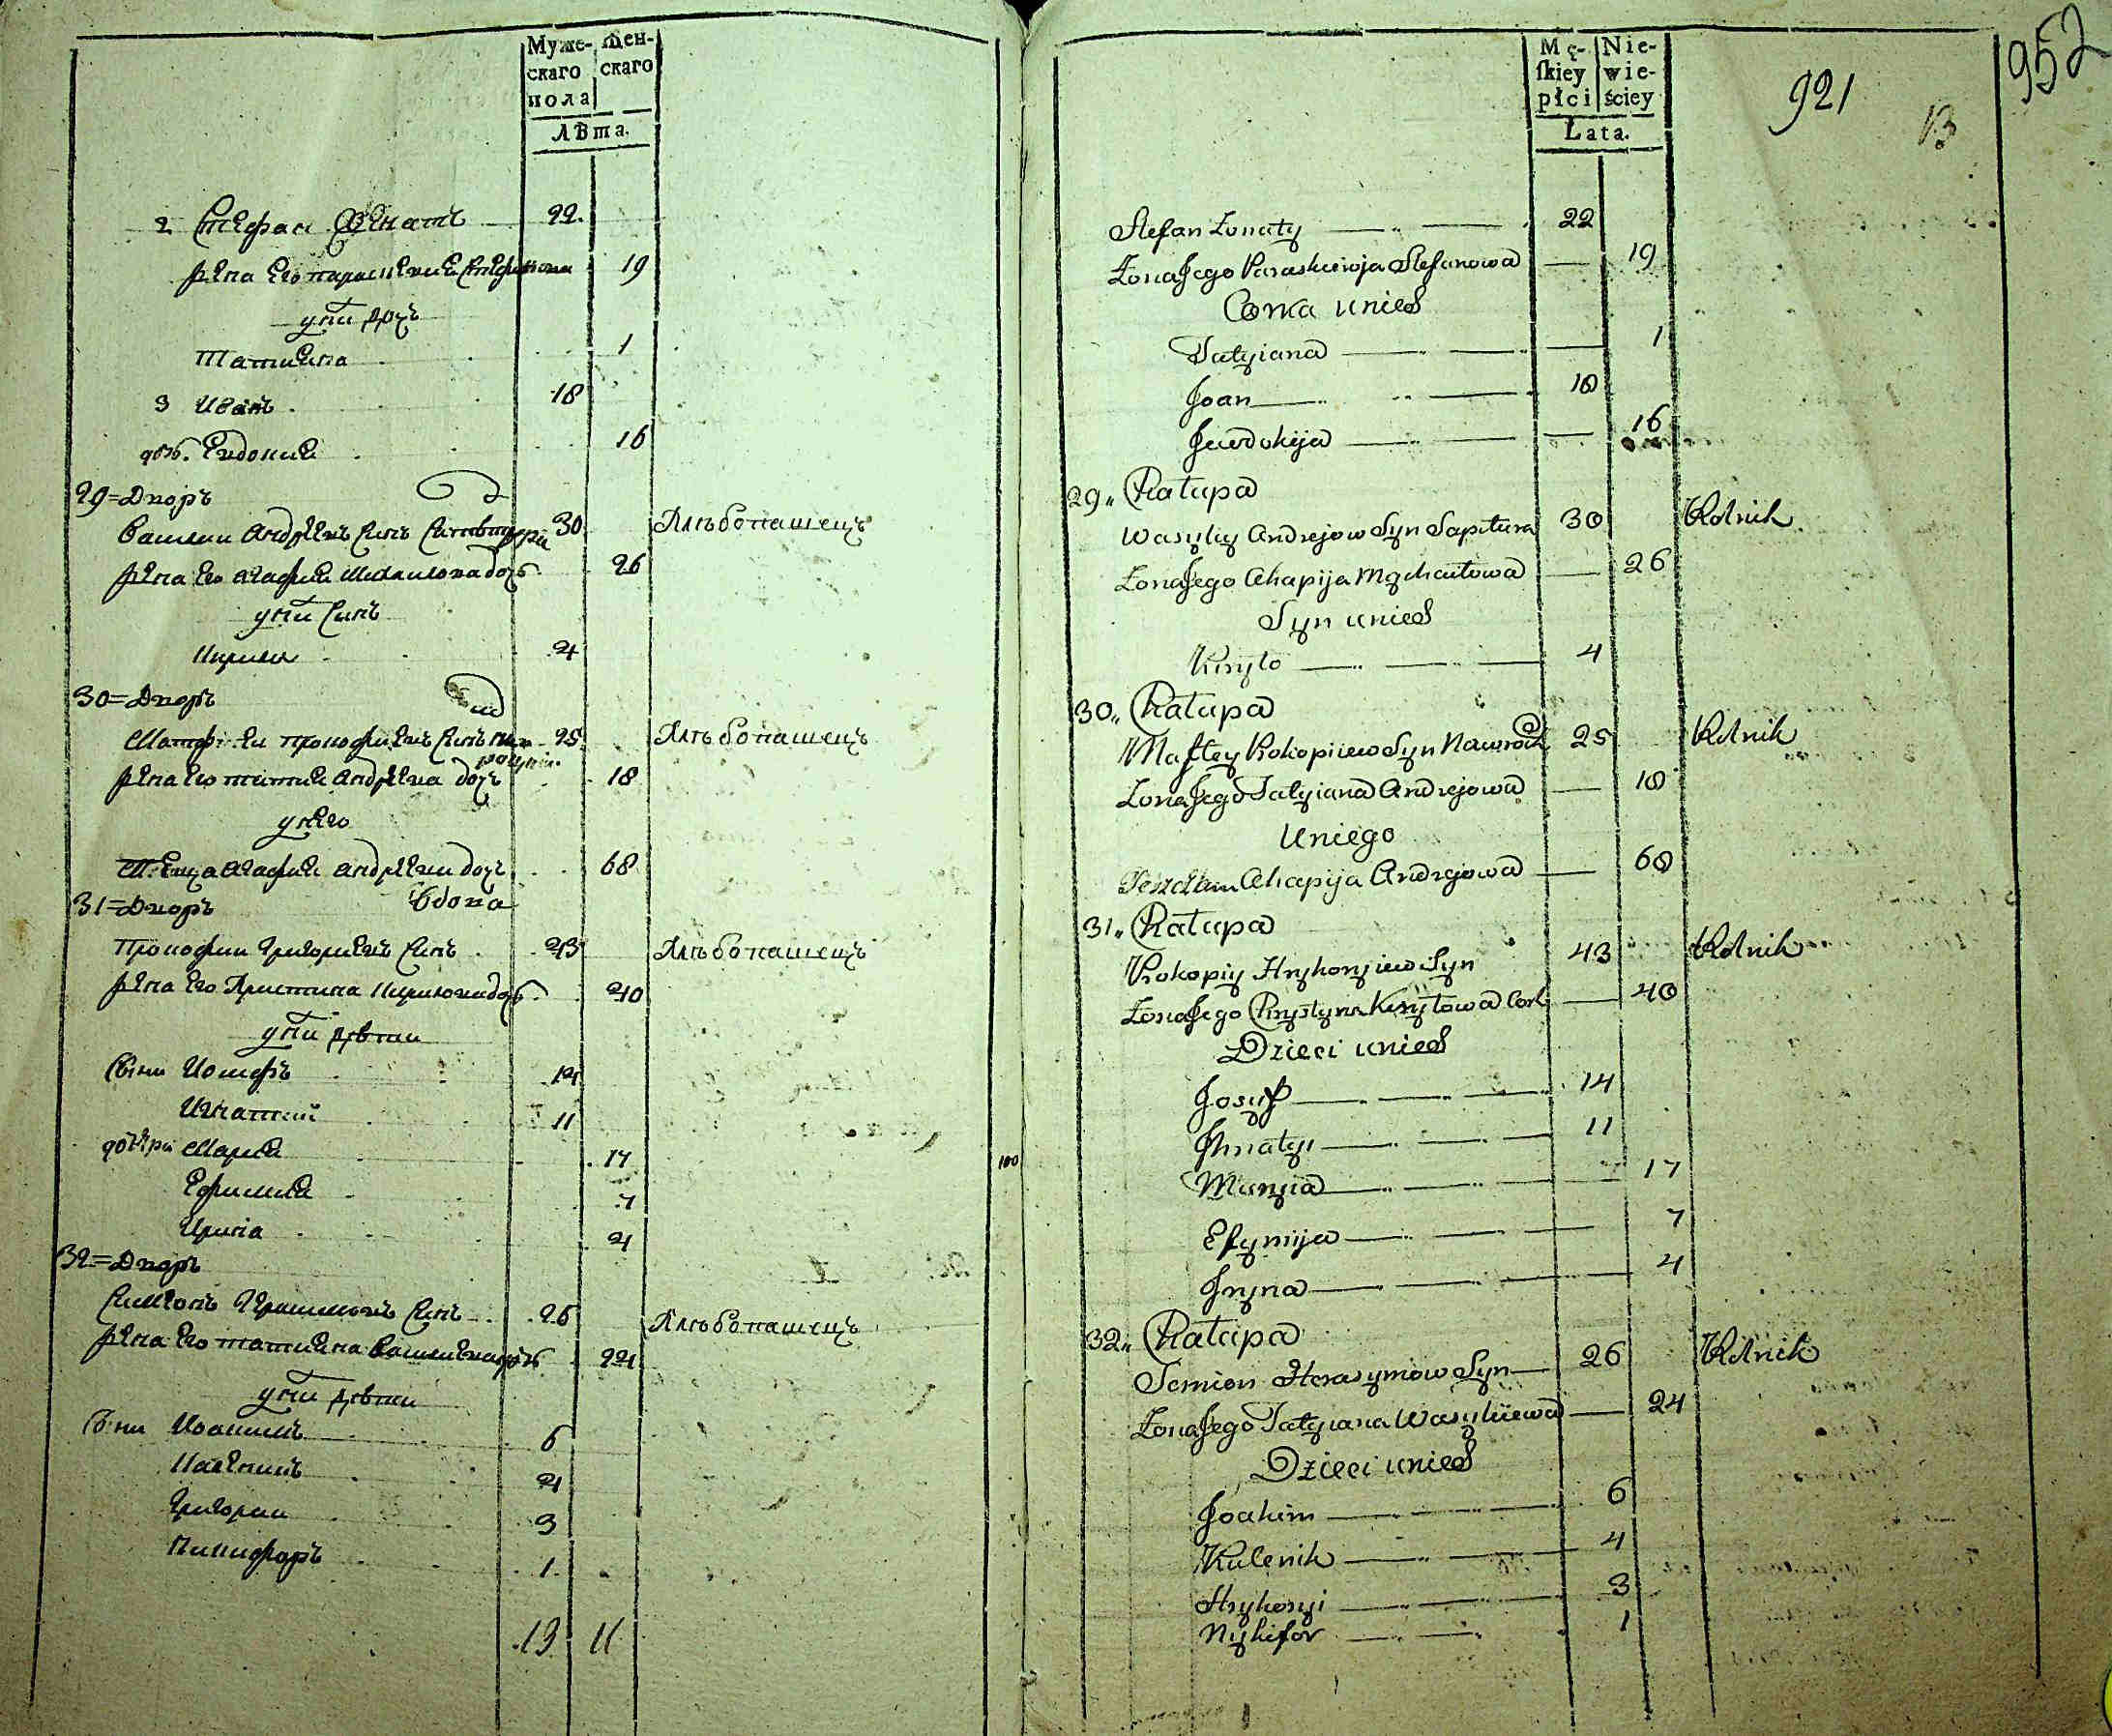 Муже-
скаго
пола
Жен-
скаго
Лѣта.
2 Стефан Женатъ 22.
жена Его параскевиѧ Стефанова 19
у них дочь
Татиѧна 1
3 Иванъ 18
доч. Евдокиѧ 16
29=Дворъ
Василии Андреевъ Синъ 30 Хлѣбопашецъ
жена Его агафиѧ Михаилова дочь 26
у них Синъ
Кирило 4
30=Дворъ
Матфеи прокофиевъ Синъ 25 Хлѣбопашецъ
жена Его татиѧ Андреева дочь 18
у нево
Теща агафиѧ андреева дочь 68
31=Дворъ вдова
Прокофии Григориевъ Синъ 43 Хлѣбопашецъ
жена Его Христина Кирилова дочь 40
у них дѣти
Сыни Иосифъ 14
Игнатий 11
дочери Мариѧ 17
Ефимиѧ 7
Ирина 4
32=Дворъ
Симеонъ Герасимовъ Синъ 26 Хлѣбопашецъ
жена Его татиѧна Василиева дочь 24
у них дѣти
Сыни Иоакимъ 6
Каленикъ 4
Григории 3
Никифоръ 1
13 11
100
Mę-
ſkiey
płci
Nie-
wie-
ściey
Łata.
921
13
952
Stefan Żonaty 22
Żona Jego Paraskiewija Stefanowa 19
Corka unich
Tatyiana 1
Joan 18
Jewdokija 16
29. Chałupa
Wasyliy Andrejow Syn Sapitura 30 Rolnik
Żona Jego Ahapija Mychaiłowa 26
Syn unich
Kiryło 4
30. Chałupa
Maftey Prokopijew Syn Nawrocki 25 Rolnik
Żona Jego Tatyiana Andrejowa 18
Uniego
Ahapija Andrejowa 68
31. Chałupa
Prokopiy Hryhoryiew Syn 43 Rolnik
Żona Jego Chrystyna Kiryłowa Cork 40
Dzieci unich
Josyf 14
Jhnatyi 11
Maryia 17
Efymija 7
Jryna 4
32. Chałupa
Semion Herasymow Syn 26 Rolnik
Żona Jego Tatyiana Wasyliiewa 24
Dzieci unich
Joakim 6
Kalenik 4
Hryhoryi 3
Nykifor 1